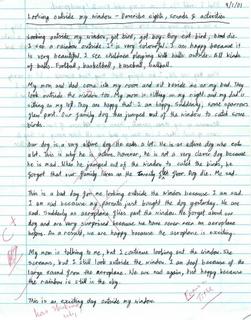 9/1/01
Looking outside my window - Describe sights, sounds & activities
Looking outside my window, get bird, get boy, boy eat bird, bird die.
I see a rainbow outside. It is very colourful. I am happy because it
is very beautiful. I see children playing with balls outside. All kinds
of balls. Football, basketball, baseball, ball.
My mom and dad come into my room and sit beside me on my bed. They
look outside the window too. My mom is sitting on my right and my dad is
sitting on my left. They are happy that I am happy. Suddenly, some sparrows
flew past. Our family dog then jumped out of the window to catch some
birds.
Our dog is a very active dog. He eats a lot. He is an active dog who eats
a lot. This is why he is active. However, he is not a very clever dog because
he is mad. When he jumped out of the window to catch the birds, he
forgot that our family lives on the floor. Dog die. Me sad.
This is a bad day for me looking outside the window because I am sad.
I am sad because my parents just bought the dog yesterday. We are
sad. Suddenly an aeroplane flies past the window. We forget about our
dog and are very surprised because we have never seen an aeroplane
before. As a result, we are happy because the aeroplane is exciting.
My mom is talking to me, but I continue looking out the window. She
screams, but I still look outside the window. I am deaf because of the
large sound from the aeroplane. We are not again, but happy because
the rainbow is still in the sky.
This is an exciting day outside my window.
C+